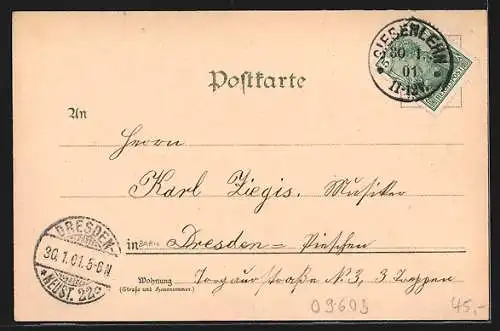 SIEBENLEHN
30 1
01
11-12V.
Postkarte
An
Herrn
Karl Ziegis. Musiker
in Dresden = Pieschen
Wohnung Torgauerstraße N 3, 3 Treppen
(Straße und Hausnummer)
DRESDEN-
30.1.01.5-6N
*NEUST. 22*
09603
45,-